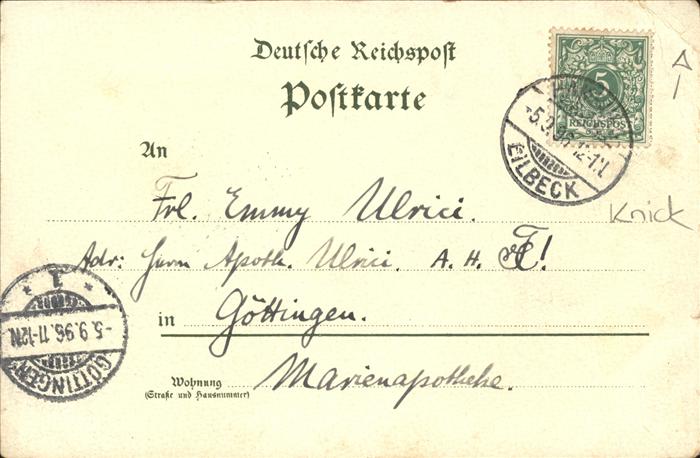 Deutsche Reichspost
Postkarte
5
REICHSPOST
-5.9.96.12-1N.
EILBECK
An
Frl. Emmy Ulrici.
Knick
Adr: Herrn Apoth. Ulrici. A. H.
1
-5.9.96.11-12N.
GÖTTINGEN
in Göttingen.
Wohnung Marienapotheke.
(Straße und Hausnummer)